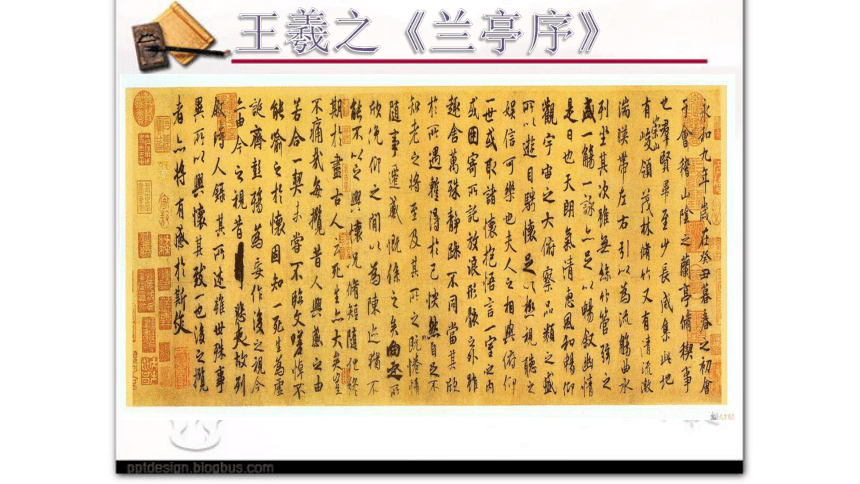 王羲之《兰亭序》
永和九年歲在癸丑暮春之初會
于會稽山陰之蘭亭脩稧事
也群賢畢至少長咸集此地
有崇山峻領茂林脩竹又有清流激
湍暎帶左右引以為流觴曲水
列坐其次雖無絲竹管弦之
盛一觴一詠亦足以暢敘幽情
是日也天朗氣清惠風和暢仰
觀宇宙之大俯察品類之盛
所以遊目騁懷足以極視聽之
娛信可樂也夫人之相與俯仰
一世或取諸懷抱悟言一室之內
或因寄所託放浪形骸之外雖
趣舍萬殊靜躁不同當其欣
於所遇蹔得於己快然自足不
知老之將至及其所之既惓情
隨事遷感慨係之矣向之所
欣俛仰之閒以為陳迹猶不
能不以之興懷況脩短隨化終
期於盡古人云死生亦大矣豈
不痛哉每攬昔人興感之由
若合一契未嘗不臨文嗟悼不
能喻之於懷固知一死生為虛
誕齊彭殤為妄作後之視今
亦由今之視昔悲夫故列
敘時人錄其所述雖世殊事
異所以興懷其致一也後之攬
者亦將有感於斯文
pptdesign.blogbus.com